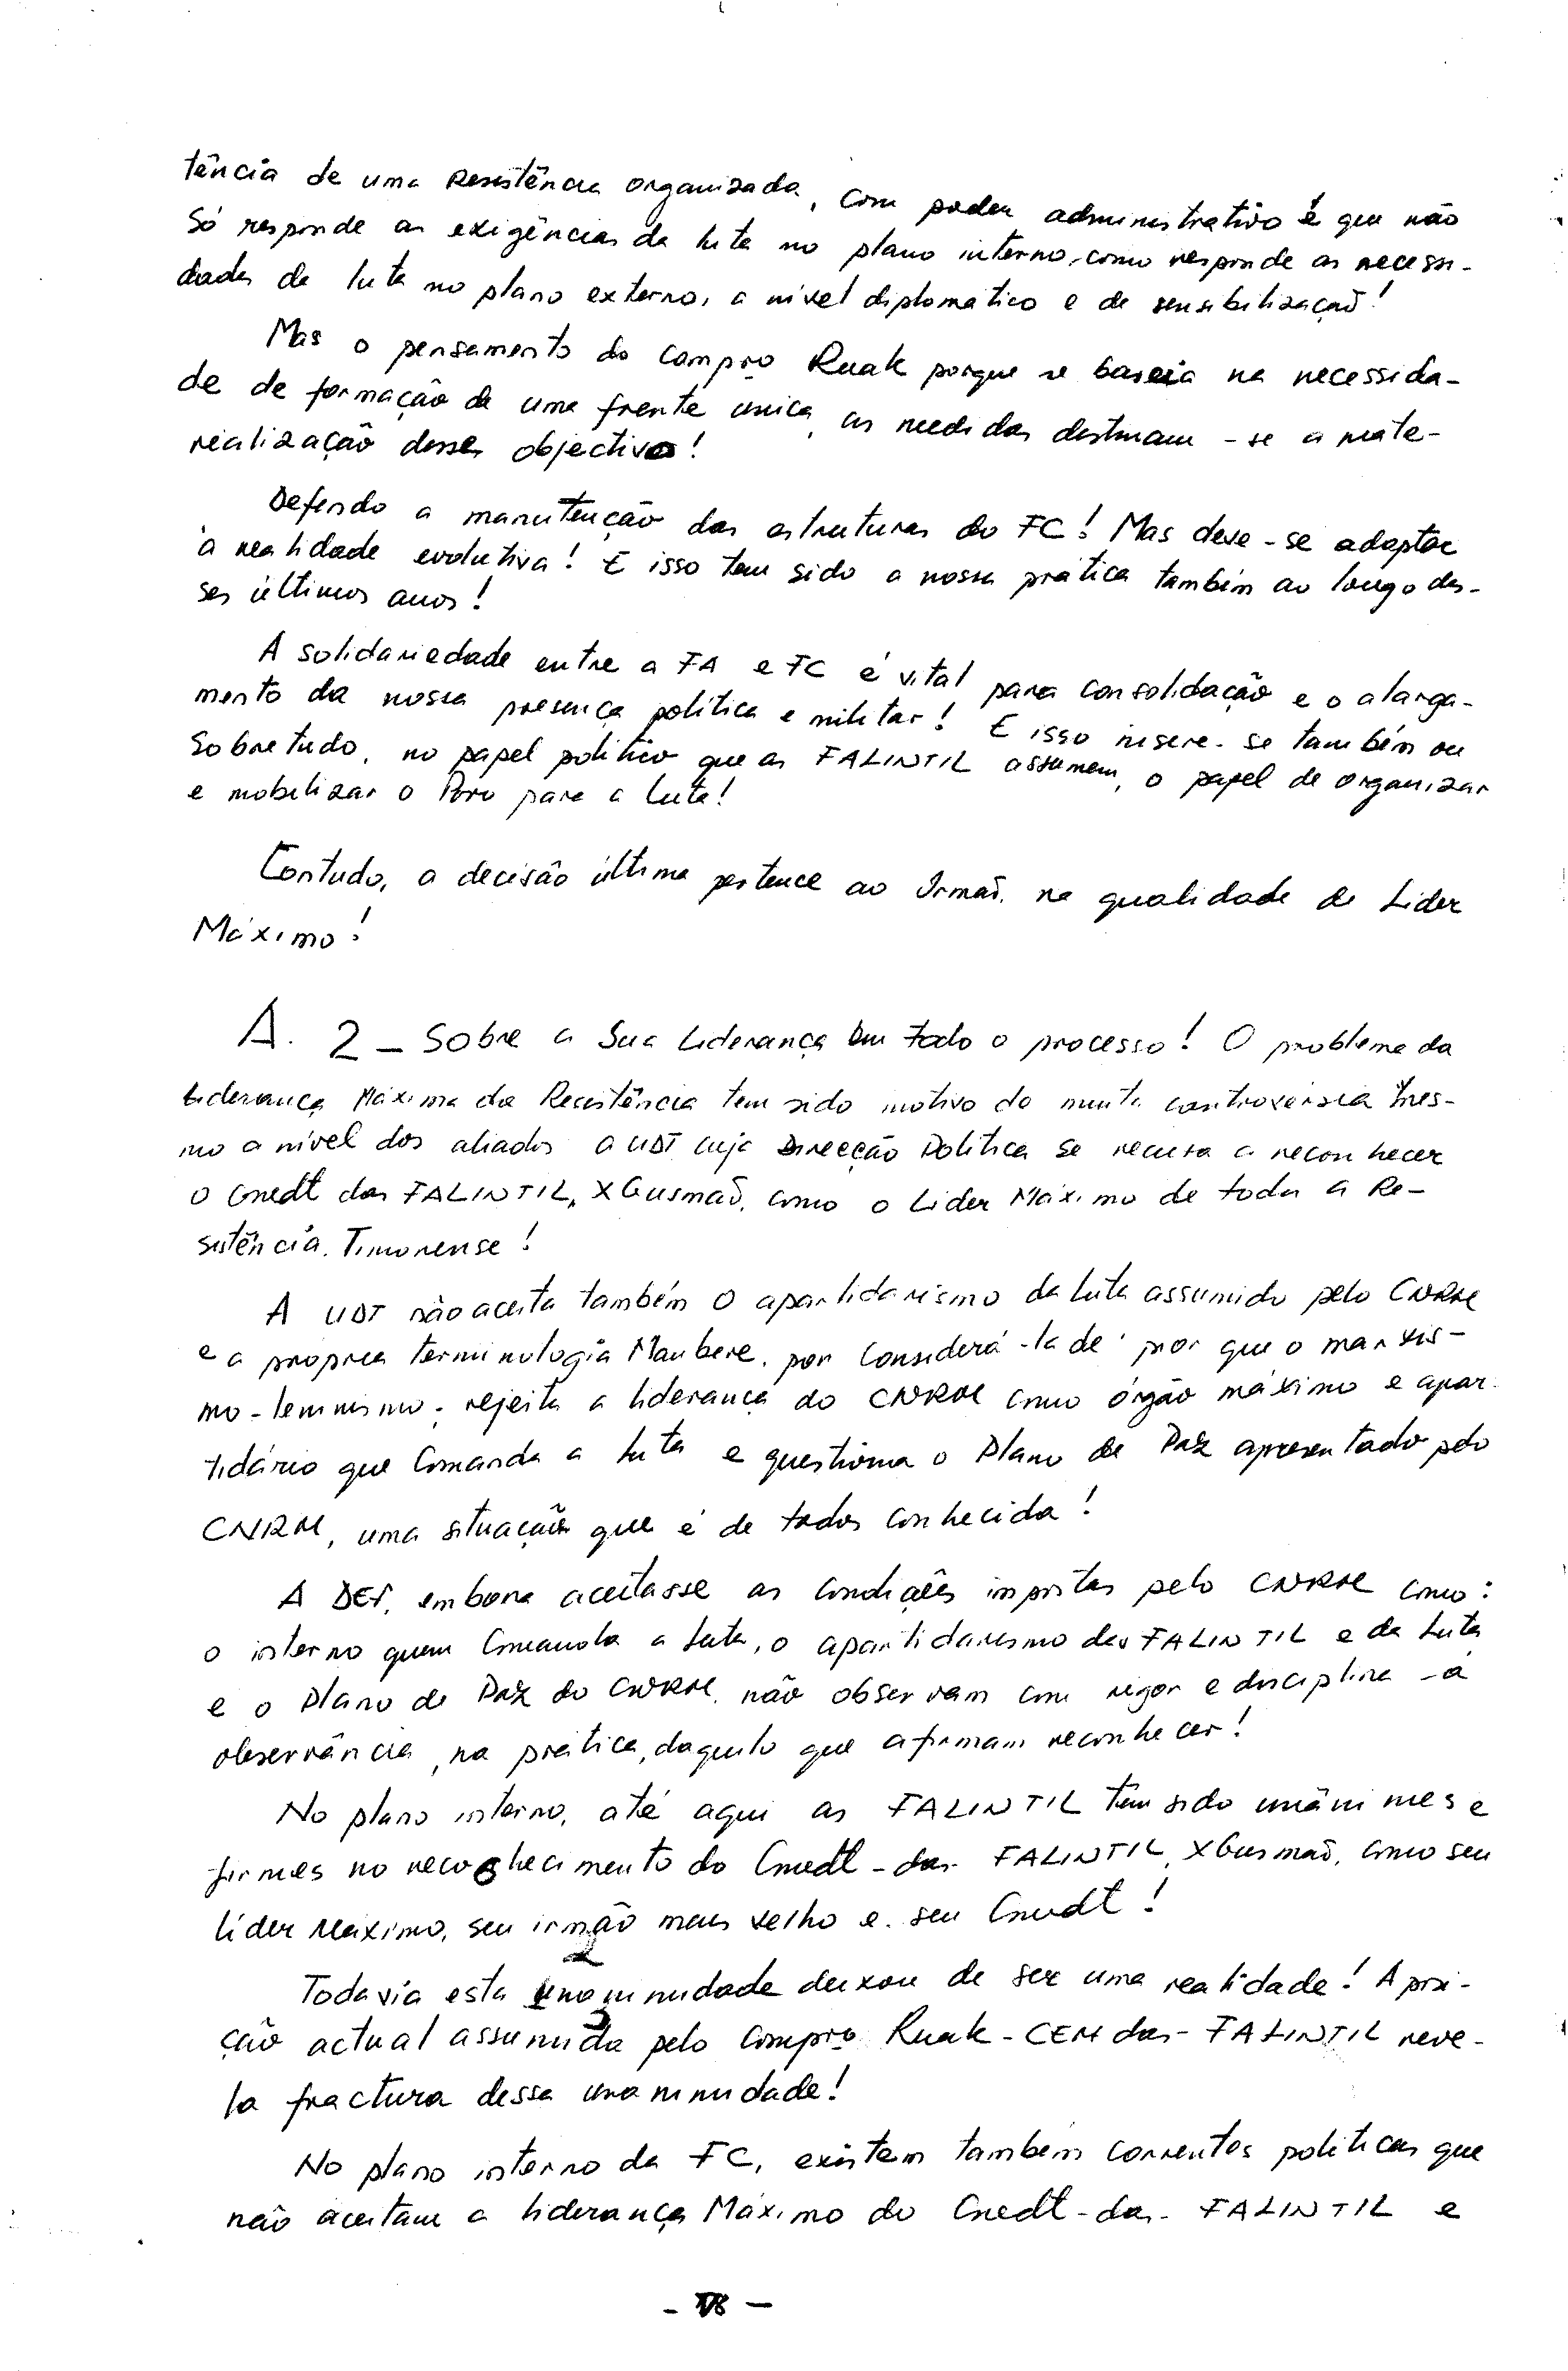 tência de uma Resistência organizada, com poder administrativo é que não
só responde as exigências da luta no plano interno, como responde as necessi-
dades de luta no plano externo, a nível diplomático e de sensibilização!
Mas o pensamento do Compro Ruak porque se baseia na necessida-
de de formação de uma frente única, as medidas destinam-se a mate-
rialização desse objectivo!
Defendo a manutenção das estruturas do FC! Mas deve-se adaptar
à realidade evolutiva! E isso tem sido a nossa prática também ao longo des-
ses últimos anos!
A solidariedade entre a FA e FC é vital para consolidação e o alarga-
mento da nossa presença política e militar! E isso insere-se também ou
sobretudo, no papel político que as FALINTIL assumem, o papel de organizar
e mobilizar o Povo para a luta!
Contudo, a decisão última pertence ao Irmão, na qualidade de Líder
Máximo!
A. 2 - Sobre a Sua Liderança em todo o processo! O problema da
Liderança Máxima da Resistência tem sido motivo de muita controvérsia mes-
mo a nível dos aliados a UDT cuja Direcção Política se recusa a reconhecer
o Cmdt das FALINTIL, XGusmão, como o Líder Máximo de toda a Re-
sistência Timorense!
A UDT não aceita também o apartidarismo da luta assumido pelo CNRM
e a própria terminologia Maubere, por considerá-la de pior que o marxis-
mo-leninismo; rejeita a liderança do CNRM como órgão máximo e apar-
tidário que comanda a luta e questiona o Plano de Paz apresentado pelo
CNRM, uma situação que é de todos conhecida!
A DEF, embora aceitasse as condições impostas pelo CNRM como:
o interno quem comanda a luta, o apartidarismo das FALINTIL e da luta
e o Plano de Paz do CNRM, não observam com rigor e disciplina - a
observância, na prática, daquilo que afirmam reconhecer!
No plano interno, até aqui as FALINTIL têm sido unânimes e
firmes no reconhecimento do Cmdt-das-FALINTIL, XGusmão, como seu
líder Máximo, seu irmão mais velho e seu Cmdt!
Todavia esta unanimidade deixou de ser uma realidade! A posi-
ção actual assumida pelo Compro Ruak-CEM das-FALINTIL reve-
la fractura dessa unanimidade!
No plano interno da FC, existem também correntes políticas que
não aceitam a liderança Máximo do Cmdt-das-FALINTIL e
- 18 -